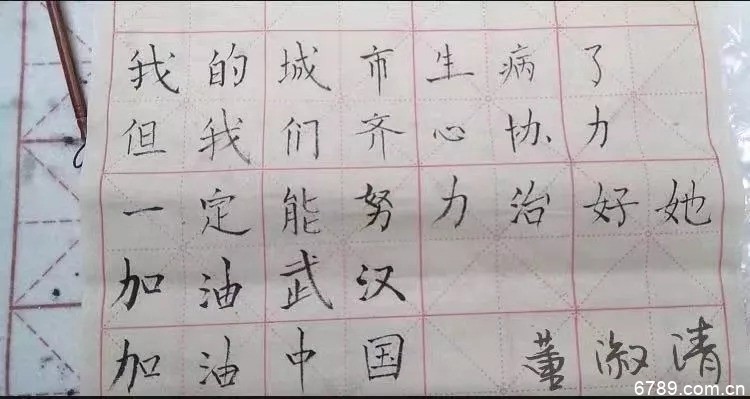 我的城市生病了
但我们齐心协力
一定能努力治好她
加油武汉
加油中国 董淑清
6789.com.cn